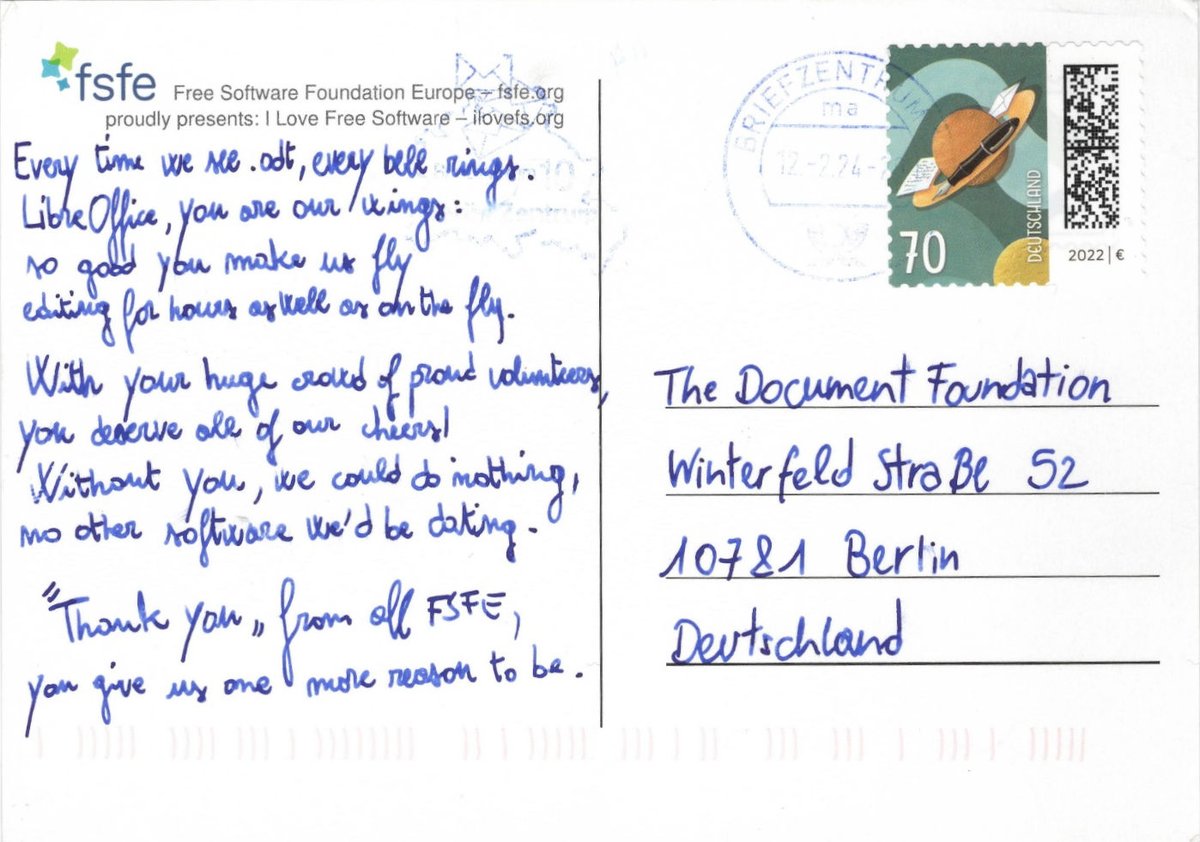 fsfe Free Software Foundation Europe – fsfe.org
proudly presents: I Love Free Software – ilovefs.org
Every time we see .odt, every bell rings.
LibreOffice, you are our wings:
so good you make us fly
editing for hours as well as on the fly.
With your huge crowd of proud volunteers,
you deserve all of our cheers!
Without you, we could do nothing,
no other software we'd be dating.
"Thank you„ from all FSFE,
you give us one more reason to be.
BRIEFZENTRUM
ma
12.-2.24-
70
DEUTSCHLAND
2022 | €
The Document Foundation
Winterfeld Straße 52
10781 Berlin
Deutschland